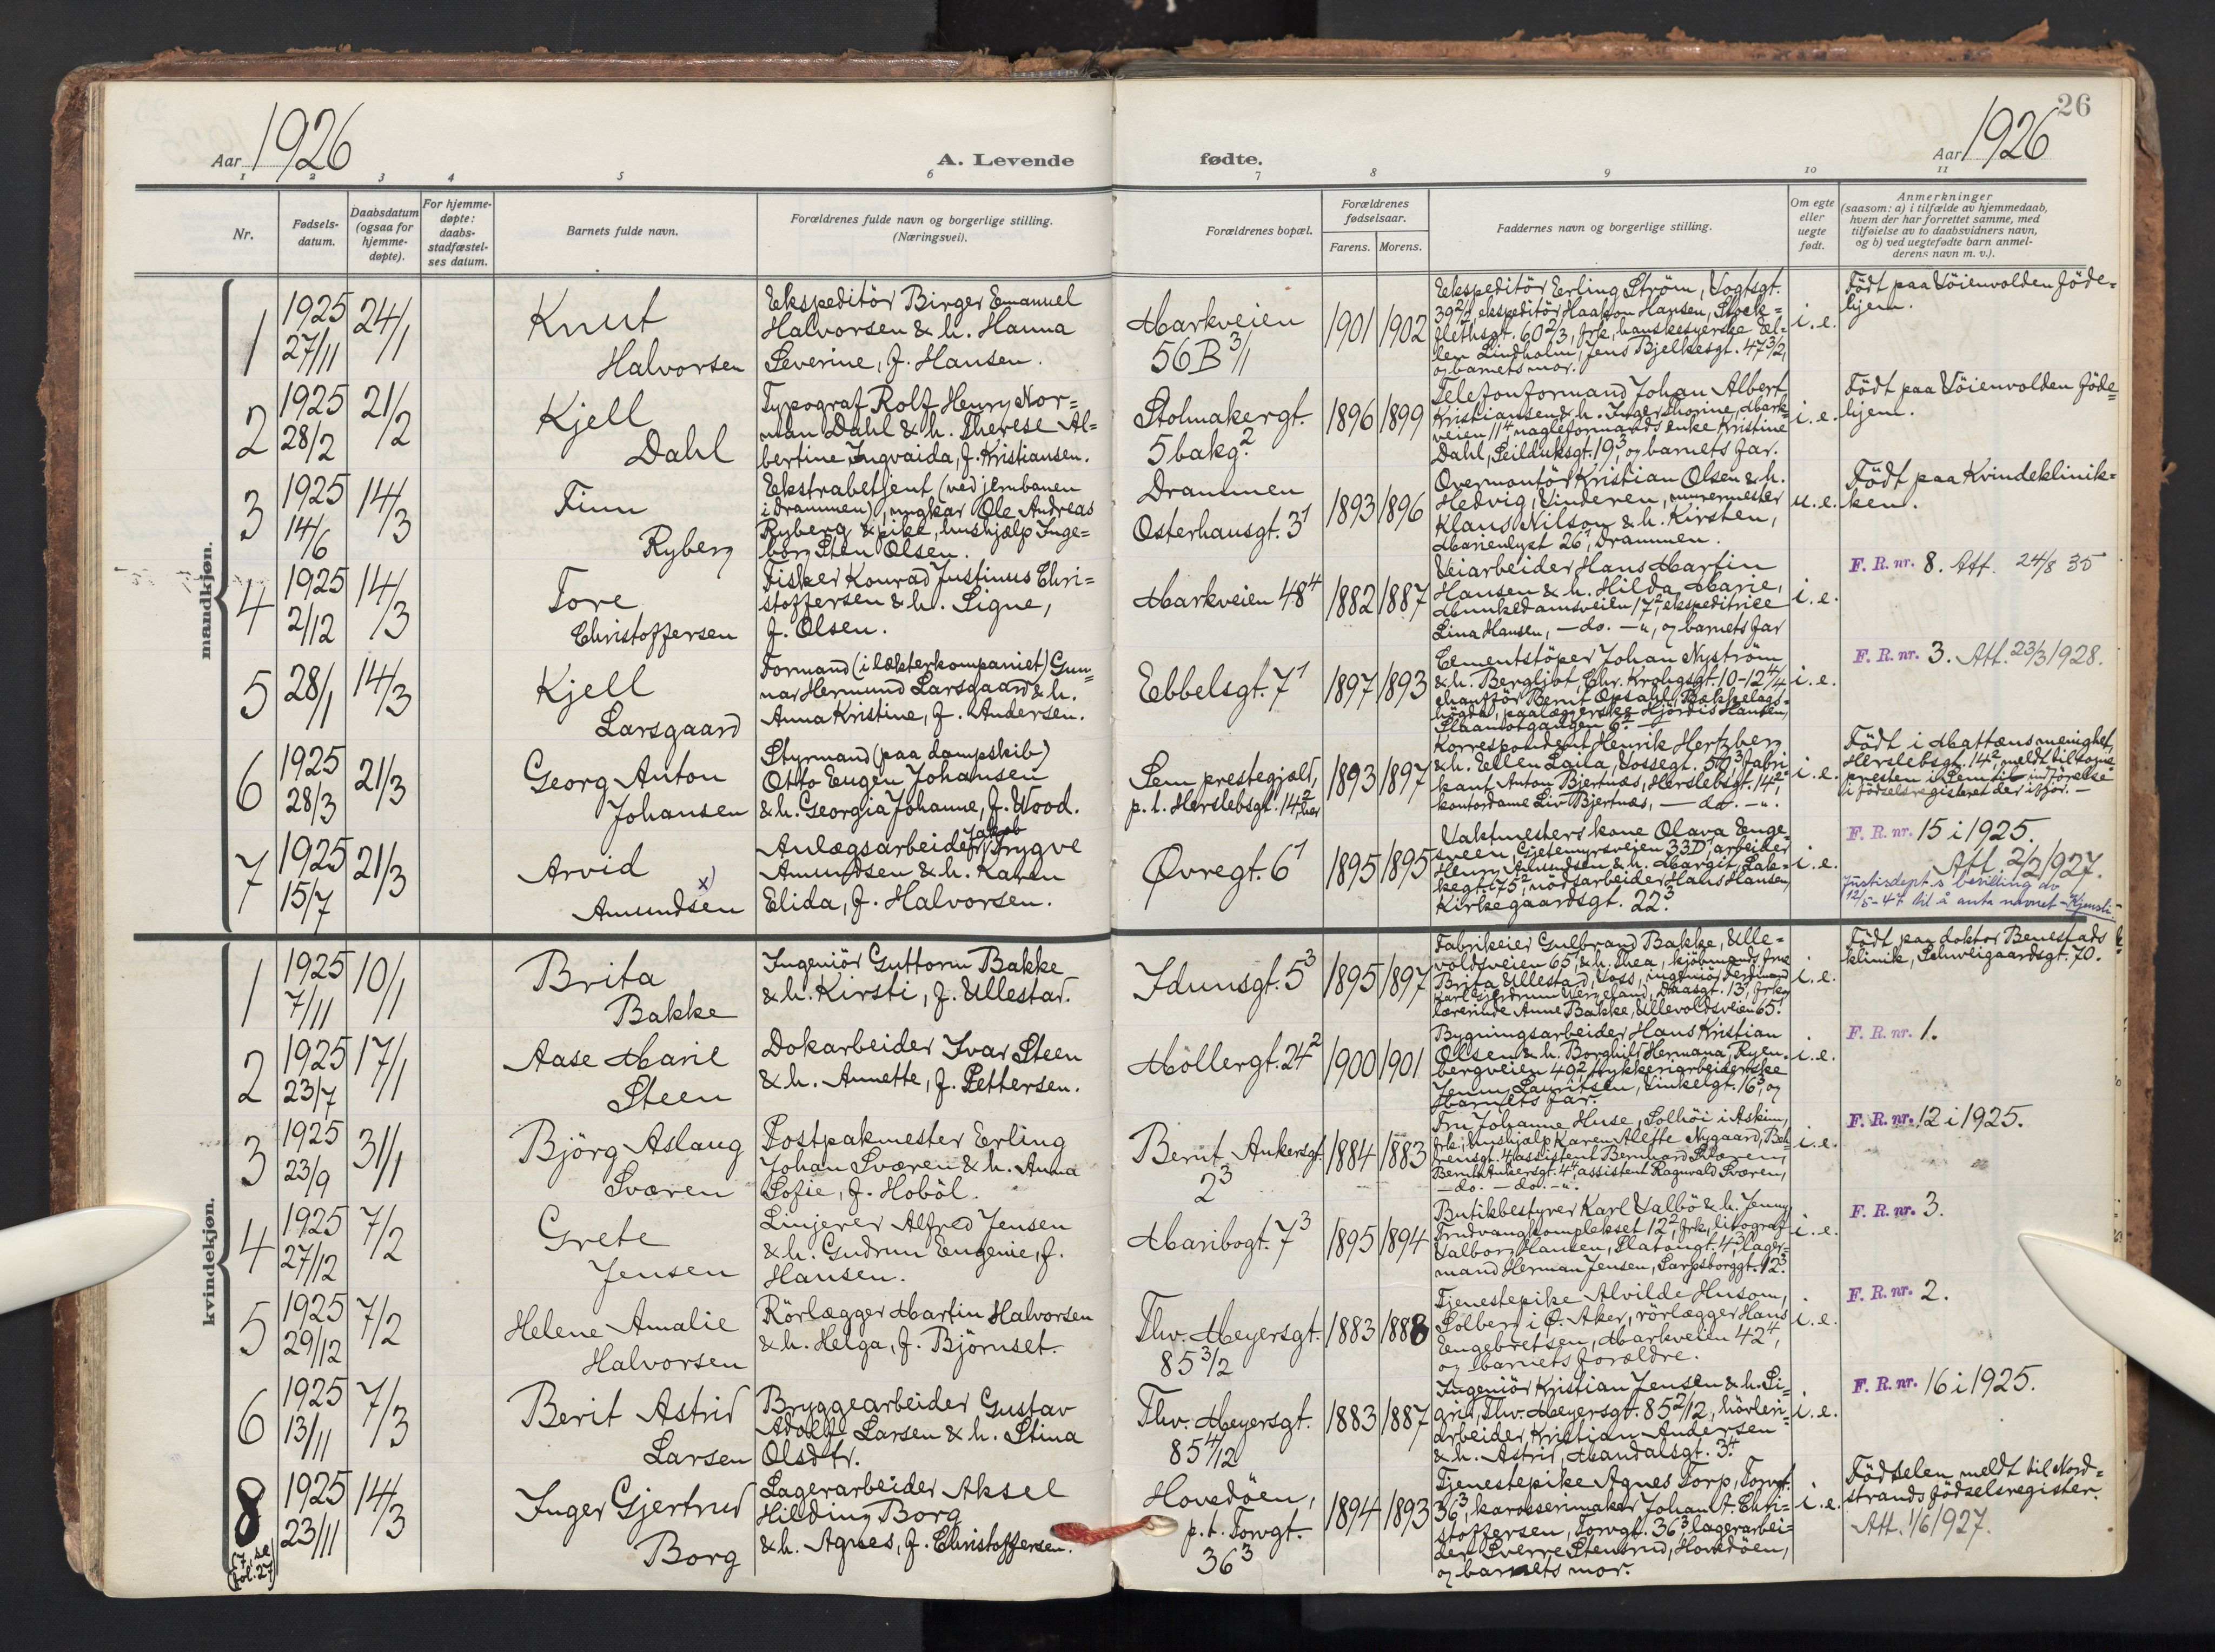 26
Aar 1926
A. Levende
fødte.
Aar 1926
1 2 3 4 5 6 7 8 9 10 11
Nr.
Fødsels-
datum.
Daabsdatum
(ogsaa for
hjemme-
døpte).
For hjemme-
døpte:
daabs-
stadfæstel-
ses datum.
Barnets fulde navn.
Forældrenes fulde navn og borgerlige stilling.
(Næringsvei).
Forældrenes bopæl.
Forældrenes
fødselsaar.
Farens. Morens.
Faddernes navn og borgerlige stilling.
Om egte
eller
uegte
født.
Anmerkninger
(saasom: a) i tilfælde av hjemmedaab,
hvem der har forrettet samme, med
tilføielse av to daabsvidners navn,
og b) ved uegtefødte barn anmel-
derens navn m. v.).
mandkjøn.
1
1925
27/11
24/1
Knut
Halvorsen
Ekspeditör Birger Emanuel
Halvorsen & h. Hanna
Severine, f. Hansen.
Markveien
56 B 3/1
1901 1902
Ekspeditör Erling Ström, Vogtsgt.
39 2/4, ekspeditör Haakon Hansen, Stock=
flethsgt. 60 2/3, frk. hanskesyerske El=
len Lindholm, Jens Bjelkesgt. 47 3/2,
og barnets mor.
i. e.
Födt paa Vöienvolden föde=
hjem.
2
1925
28/2
21/2
Kjell
Dahl
Typograf Rolf Henry Nor=
man Dahl & h. Therese Al=
bertine Ingvaida, f. Kristiansen.
Stolmakergt.
5 bakg. 2
1896 1899
Telefonformand Johan Albert
Kristiansen & h. Inger Thorine, Mark=
veien 11 4, nagleformands enke Kristine
Dahl, Seilduksgt. 19 3, og barnets far.
i. e.
Födt paa Vöienvolden föde=
hjem.
3
1925
14/6
14/3
Finn
Ryberg
Ekstrabetjent (ved jernbanen
i Drammen), ungkar Ole Andreas
Ryberg & pike, hushjælp Inge=
borg Sten Olsen.
Drammen
Osterhausgt. 3 1
1893 1896
Overmontör Kristian Olsen & h.
Hedvig, Vinderen, murermester
Klaus Nilson & h. Kirsten,
Marienlyst 26 1, Drammen.
u. e.
Födt paa Kvindeklinik=
ken.
4
1925
2/12
14/3
Tore
Christoffersen
Fisker Konrad Justinus Chri=
stoffersen & h. Signe,
f. Olsen.
Markveien 48 4
1882 1887
Veiarbeider Hans Martin
Hansen & h. Hilda Marie,
Munkedamsveien 17 2, ekspeditrice
Lina Hansen, — do. — u, og barnets far
i. e.
F. R. nr. 8. Att. 24/8 35
5
28/1
14/3
Kjell
Larsgaard
Formand (i lækterkompaniet) Gun=
nar Hermund Larsgaard & h.
Anna Kristine, f. Andersen.
Ebbelsgt. 7 1
1897 1893
Cementstöper Johan Nyström
& h. Bergljot, Chr. Krohgsgt. 10-12 4/4
chauffør Bernt Opsahl, Bakkelags=
högda, paalæggerske Hjördis Hansen,
i. e.
F. R. nr. 3. Att. 23/3 1928.
6
1925
28/3
21/3
Georg Anton
Johansen
Styrmand (paa dampskib)
Otto Eugen Johansen
& h. Georgia Johanne, f. Wood.
Sem prestegjæld,
p. t. Herslebsgt. 14 2, her
1893 1897
Korrespondent Henrik Hertzberg
& h. Ellen Laila, Vossegt. 50 3, fabri=
kant Anton Bjertnæs, Herslebsgt. 14 2,
kontordame Liv Bjertnæs, — do. — u.
i. e.
Födt i Mattæus menighet,
Herslebsgt. 14 2, meldt til sogne=
presten i Sem til indförelse
i födselsregisteret der ifjor. —
7
1925
15/7
21/3
Arvid
x)
Amundsen
Jakob
Anlægsarbeider Trygve
Amundsen & h. Karen
Elida, f. Halvorsen.
Øvregt. 6 1
1895 1895
Vaktmesters kone Olava Enge=
sveen, Gjetemyrsveien 33 D, arbeider
Henry Amundsen & h. Margit, Bak=
kegt. 75 2, nödsarbeider Hans Hansen,
Kirkegaardsgt. 22 3.
i. e.
F. R. nr. 15 i 1925.
Att. 2/2 1927.
Justisdept.s bevilling av
12/5-47 til å anta navnet - Kjensli
kvindekjøn.
1
1925
7/11
10/1
Brita
Bakke
Ingeniör Guttorm Bakke
& h. Kirsti, f. Ullestad.
Idunsgt. 5 3
1895 1897
Fabrikeier Gulbrand Bakke, Ulle=
voldsveien 65 1, & h. Thea, kjöbmands frue
Brita Ullestad, Voss, ingeniör Ferdinand
Karl Gjerdrum Wergeland, Daasgt. 13 1, frk.
lærerinde Anne Bakke, Ullevoldsveien 65 1.
i. e.
Födt paa doktor Benestads
klinik, Schweigaardsgt. 70.
2
1925
23/7
17/1
Aase Marie
Steen
Dokarbeider Ivar Steen
& h. Annette, f. Pettersen.
Möllergt. 24 2
1900 1901
Bygningsarbeider Hans Kristian
Olsen & h. Borghild Hermana, Ryen=
bergveien 49 2, trykkeriarbeiderske
Jenny Lauritsen, Vinkelgt. 16 3, og
barnets far.
i. e.
F. R. nr. 1.
3
1925
23/9
31/1
Björg Aslaug
Sværen
Postpakmester Erling
Johan Sværen & h. Anna
Sofie, f. Hoböl.
Bernt Ankersgt.
2 3
1884 1883
Fru Johanne Huse, Solhöi i Askim,
frk. hushjælp Karen Alette Nygaard, Beh=
rensgt. 4, assistent Bernhard Sværen,
Bernt Ankersgt. 4 4, assistent Ragnvald Sværen,
— do. — do. — u.
i. e.
F. R. nr. 12 i 1925.
4
1925
27/12
7/2
Grete
Jensen
Linjerer Alfred Jensen
& h. Gudrun Eugenie, f.
Hansen.
Maribogt. 7 3
1895 1894
Butikbestyrer Karl Valbö & h. Jenny,
Trudvangkomplekset 12 2, frk. litograf
Valborg Hansen, Platougt. 4 3, lager=
mand Herman Jensen, Sarpsborggt. 12 3.
i. e.
F. R. nr. 3.
5
1925
29/12
7/2
Helene Amalie
Halvorsen
Rörlægger Martin Halvorsen
& h. Helga, f. Björnset.
Thv. Meyersgt.
85 3/2
1883 1888
Tjenestepike Alvilde Husom,
Solberg i Ö. Aker, rörlægger Hans
Engebretsen, Markveien 42 4,
og barnets forældre.
i. e.
F. R. nr. 2.
6
1925
13/11
7/3
Berit Astrid
Larsen
Bryggearbeider Gustav
Adolf Larsen & h. Stina
Olsdtr.
Thv. Meyersgt.
85 4/12
1883 1887
Ingeniör Kristian Jensen & h. Si=
grid, Thv. Meyersgt. 85 2/12,
arbeider Kristian Andersen
& h. Astrid, Mandalsgt. 3 4.
i. e.
F. R. nr. 16 i 1925.
8
(7, se
fol. 27)
1925
23/11
14/3
Inger Gjertrud
Borg
Lagerarbeider Aksel
Hilding Borg
& h. Agnes, f. Christoffersen.
Hovedöen,
p. t. Torvgt.
36 3
1894 1893
Tjenestepike Agnes Torp, Torvgt.
36 3, karosserimaker Johan A. Chri=
stoffersen, Torvgt. 36 3, lagerarbei=
der Sverre Stensrud, Hovedöen,
og barnets mor.
i. e.
Födselen meldt til Nord=
strands födselsregister.
Att. 1/6 1927.